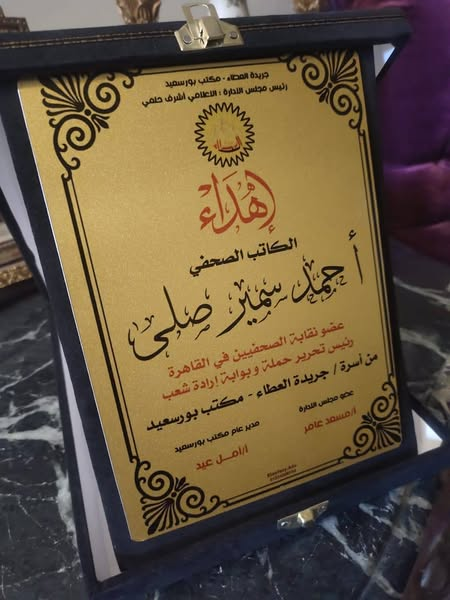 جريدة العطاء - مكتب بورسعيد
رئيس مجلس الادارة : الاعلامي أشرف حلمي
العطاء
إهداء
الكاتب الصحفي
أحمد سمير صلى
عضو نقابة الصحفيين في القاهرة
رئيس تحرير حملة و بوابة إرادة شعب
من أسرة / جريدة العطاء - مكتب بورسعيد
عضو مجلس الادارة
مدير عام مكتب بورسعيد
أ/مسعد عامر
أ/أمل عيد